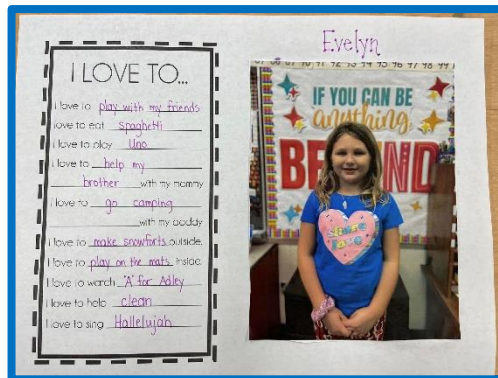 Evelyn
I LOVE TO...
I love to play with my friends
I love to eat spaghetti
I love to play Uno
I love to help my
brother with my mommy
I love to go camping
with my daddy
I love to make snowforts outside.
I love to play on the mats inside.
I love to watch "A" for Adley
I love to help clean
I love to sing Hallelujah
90 91 92 93 94 95 96 97 98 99
IF YOU CAN BE
anything,
BE KIND
Share
Love